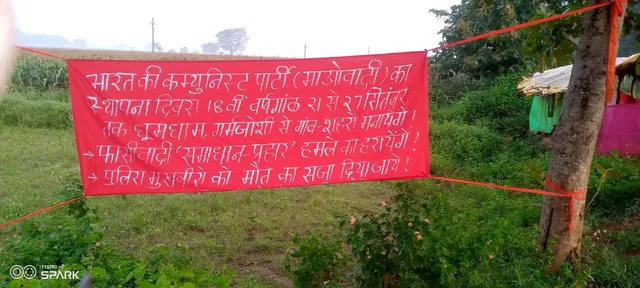 भारत की कम्युनिस्ट पार्टी (माओवादी) का
स्थापना दिवस 18वीं वर्षगांठ 21 से 27 सितंबर
तक धुमधाम, गर्मजोशी से गांव-शहरों मनायेंगे!
→ फासीवादी 'समाधान-प्रहार' हमले का हरायेंगे!
→ पुलिस मुखबीरों को मौत का सजा दिया जाये!
SPARK